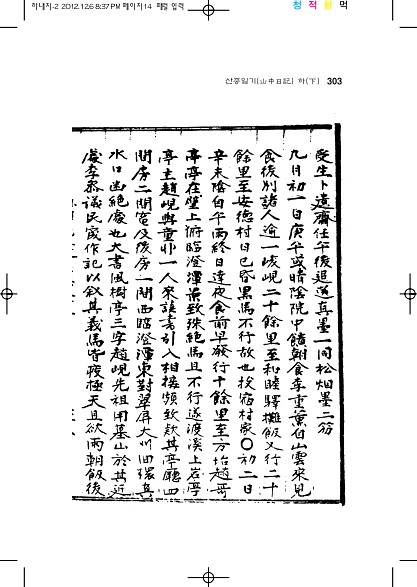 하내지-2 2012.12.6 8:37 PM 페이지14 패럴 입력
청 적 황 먹
산중일기(山中日記) 하(下) 303
受生卜遺齋任午後追道真墨一同松烟墨二笏
九月初一日庚午或晴陰院中饋朝食李重薰白山雲來見
食後別諸人逾一峻峴二十餘里至和睦驛攤飯又行二十
餘里至安德村日已昏黑馬不行故也投宿村家○初二日
辛未陰白午雨終日達夜食前早發行十餘里至方坮趙哥
亭亭在壁上俯臨澄潭景致殊絶馬且不行遂渡溪上岩亭
亭主趙峴與童丱一人來讀書引入相接頻致欵其亭廳四
間房二間宮及後房一間西臨澄潭東對翠屛大川洄環真
水口幽絶處也大書風樹亭三字趙峴先祖用墓山於其近
處李叅議民宬作記以叙其義馬皆疲極天且欲雨朝飯後